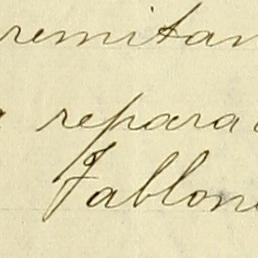 remitan
a repara
Jablon